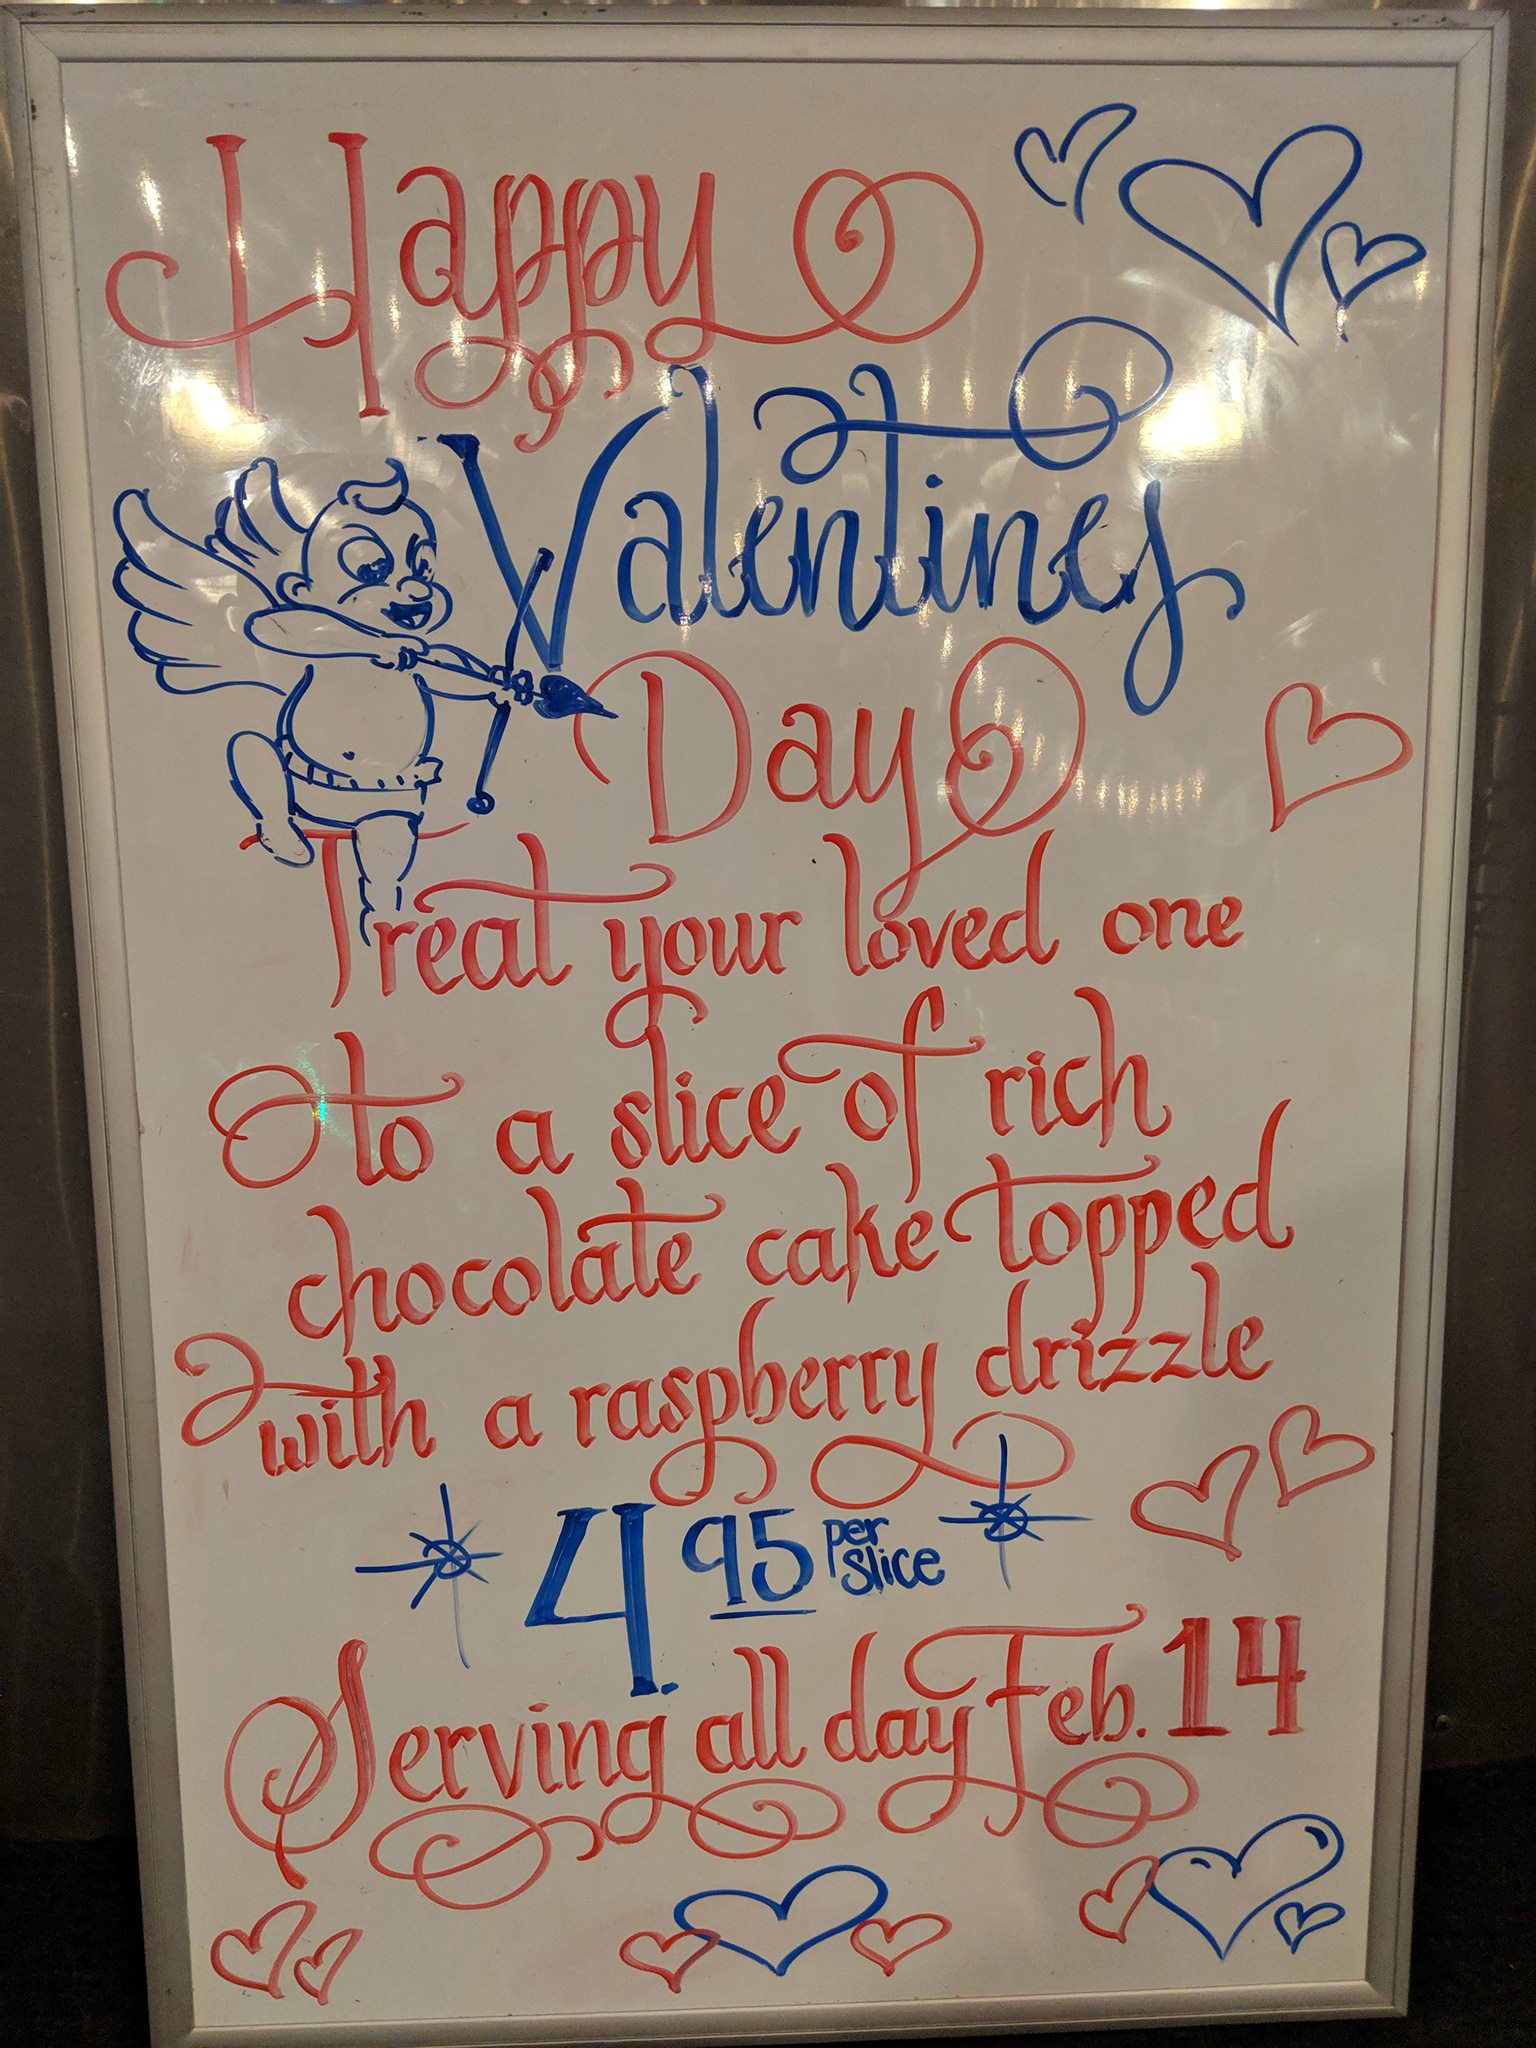 Happy
Valentines
Day
Treat your loved one
to a slice of rich
chocolate cake topped
with a raspberry drizzle
4.95 per slice
Serving all day Feb. 14